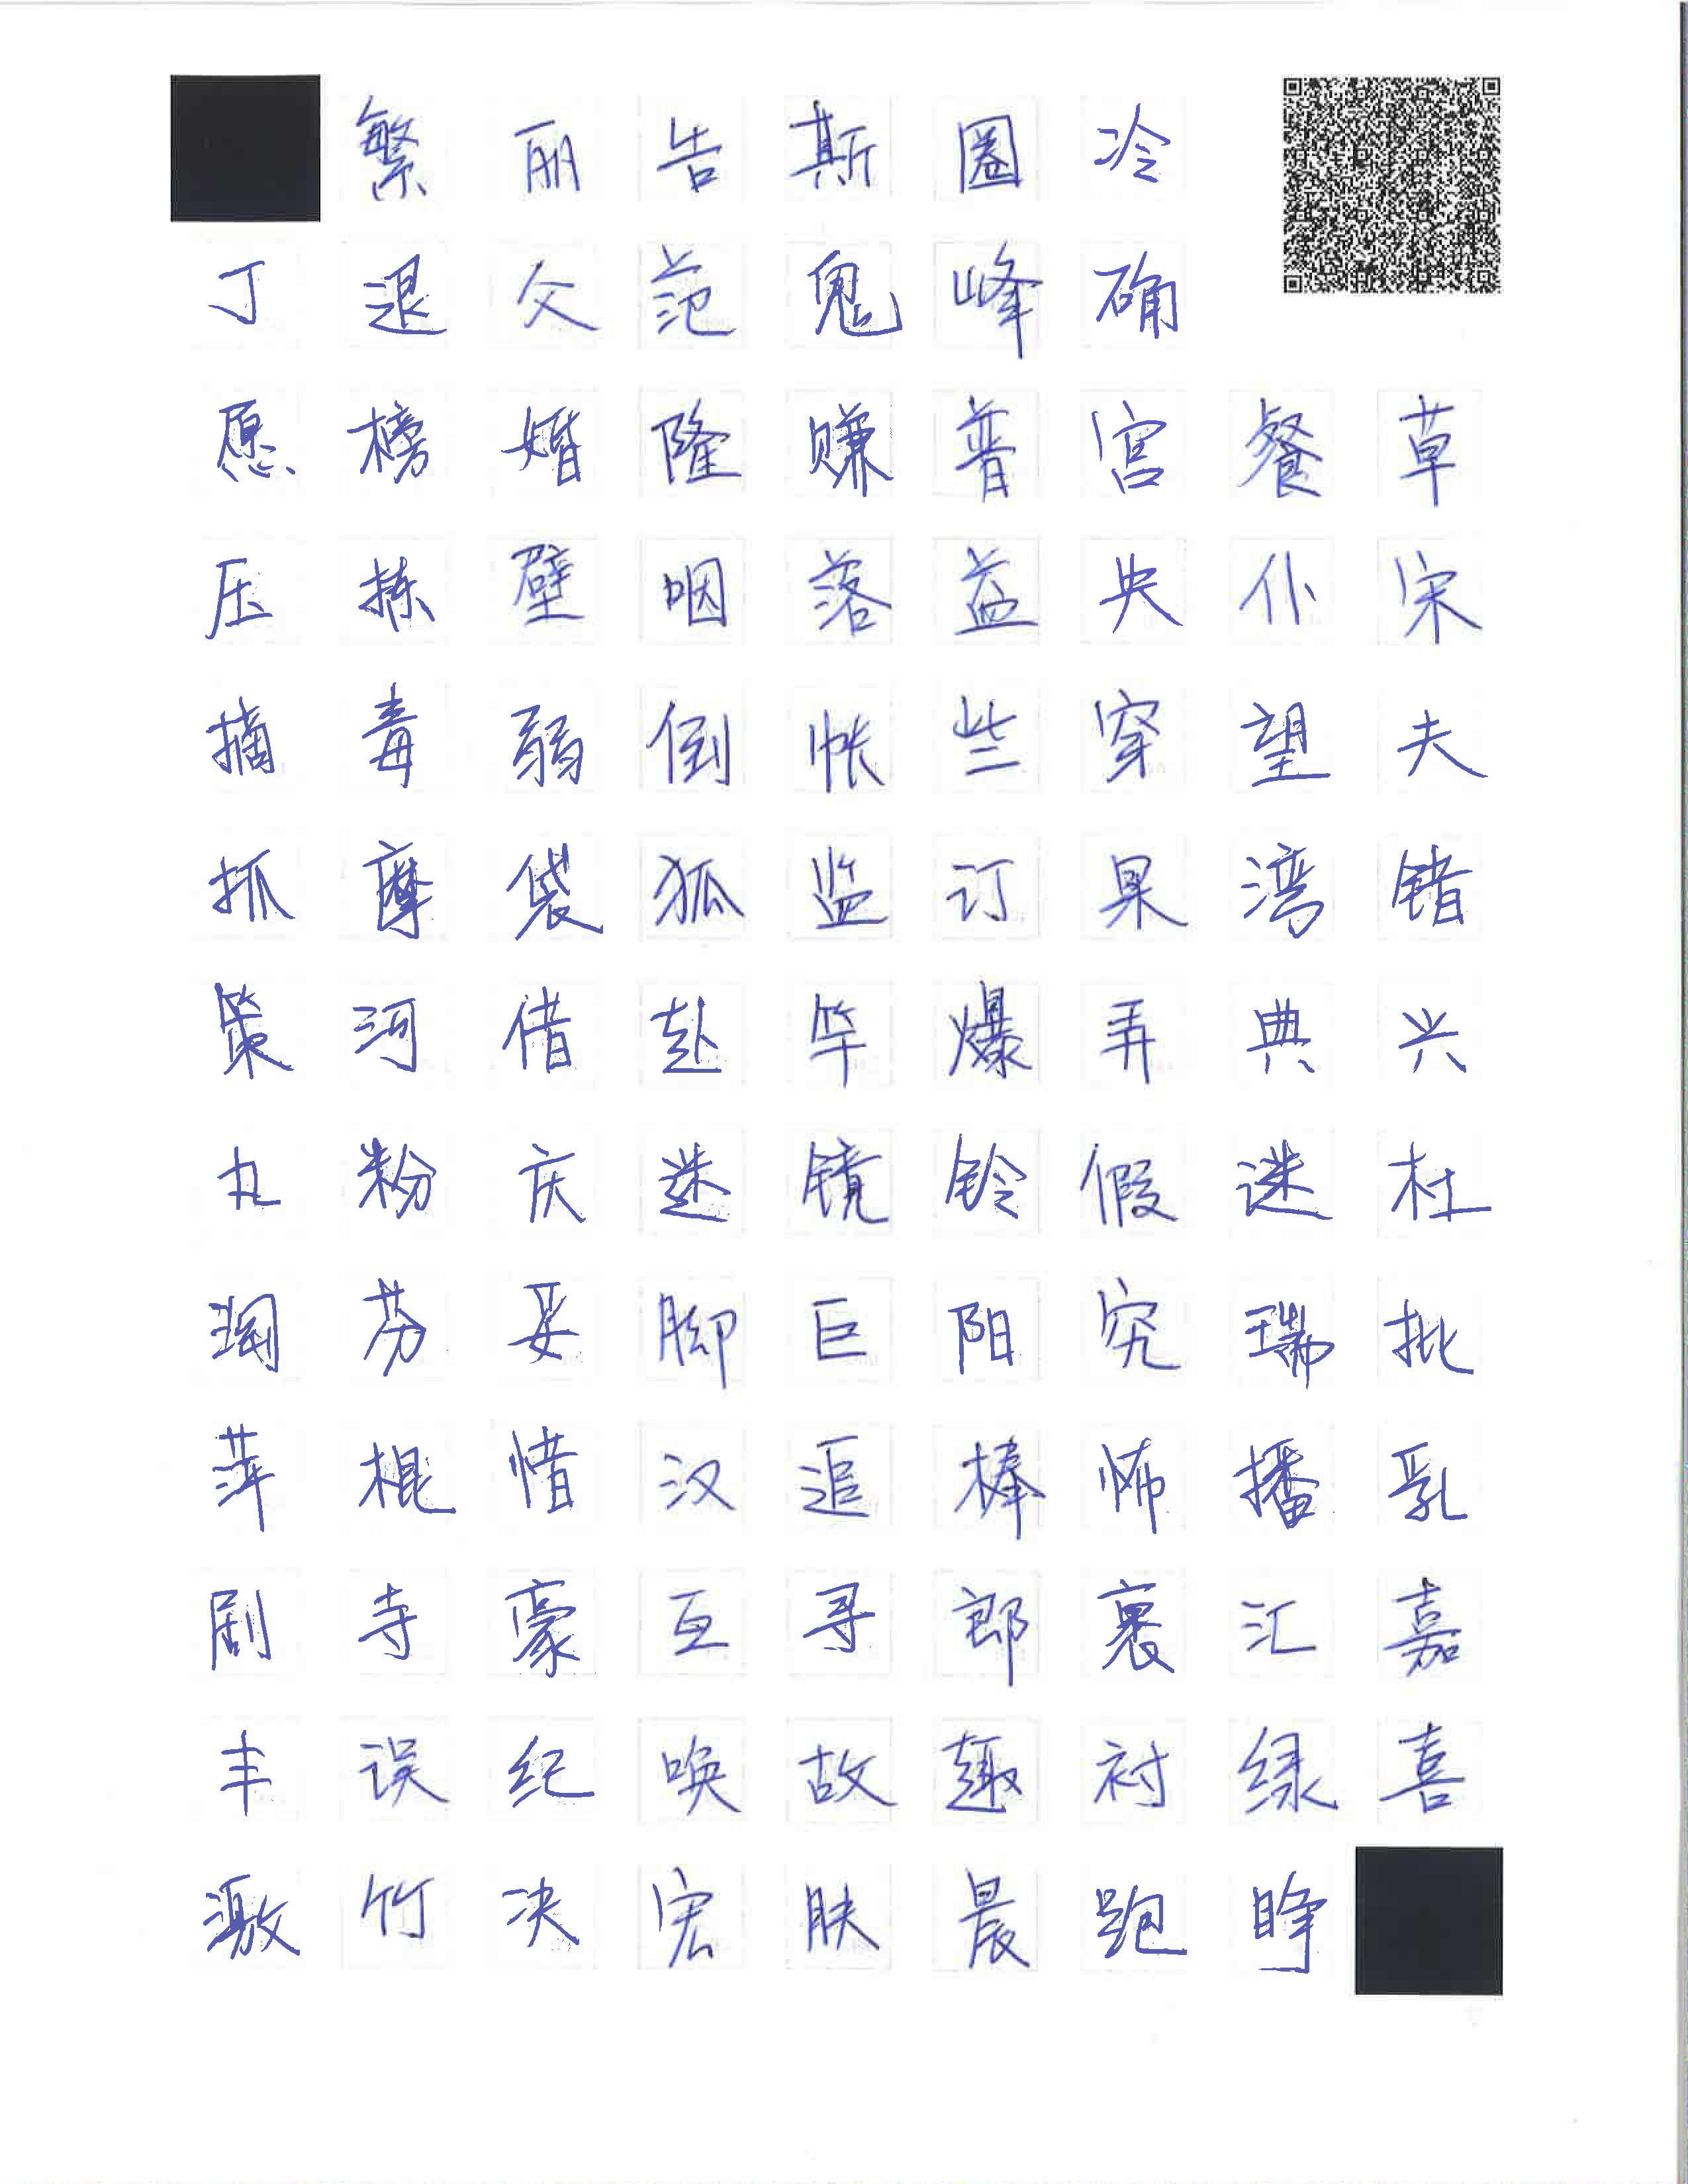 繁丽告斯圈冷
丁退父范鬼峰确
愿榜婚隆赚普宫餐草
压拣壁咽落益央仆宋
摘毒弱倒帐些穿望夫
抓摩袋狐监订果湾错
策河借赴竿爆弄典兴
丸粉庆迷镜铃假谜杜
润芬妥脚巨阳究瑞批
萍棍惜汉追棒怖播乳
剧寺豪互寻郎裹汇嘉
丰误纪唤故趣衬绿喜
激竹决宏肤晨跑睁